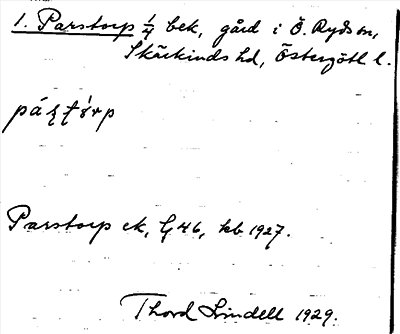 1. Parstorp 1/4 bek, gård i Ö. Ryds sn,
Skärkinds hd, Östergötl l.
Parstorp ek, G 46, kb 1927.
Thord Lindell 1929.